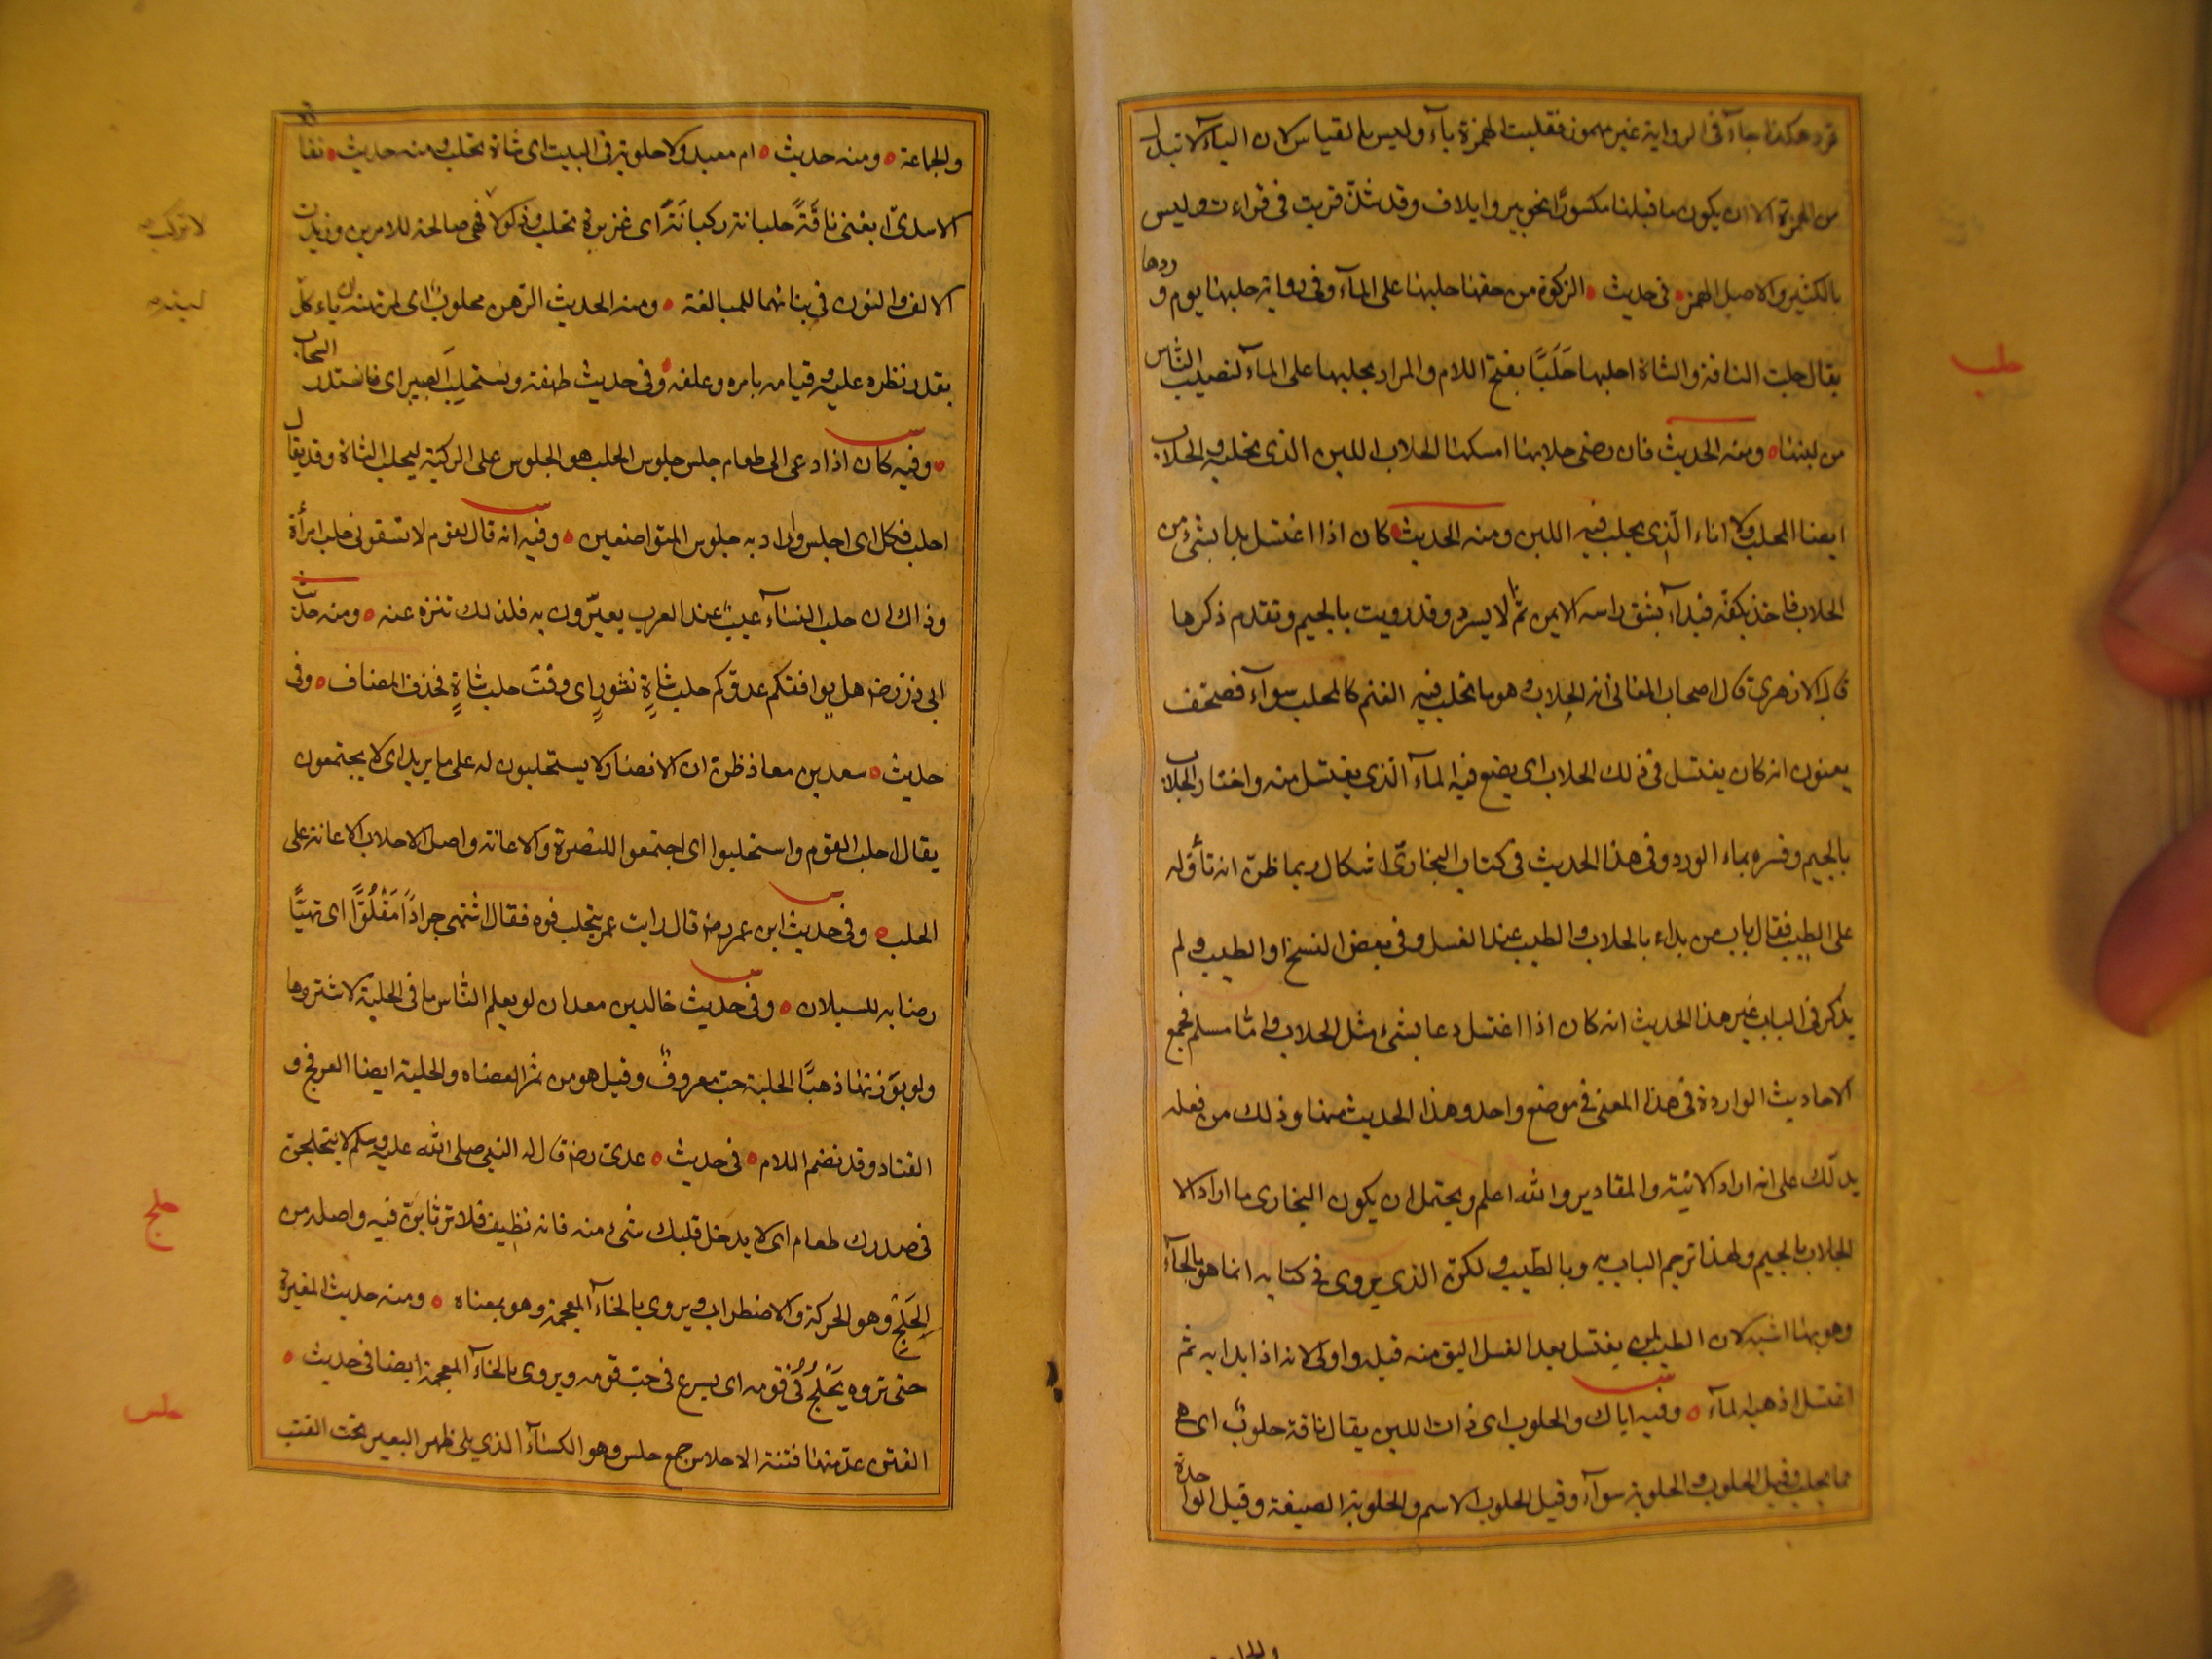 قرد هكذا جاء فى الرواية غير مهموز فقلبت الهمزة ياء وليس بالقياس لان الياء لا تبدل
من الهمزة الا ان يكون ما قبلها مكسورًا نحو بير وايلاف وقد شذّ قريت فى قراءت وليس
بالكثير والاصل الهمز فى حديث الزكوة من حقها حلبها على الماء وفى رواية حلبها يوم وردها
يقال حلبت الناقة والشاة احلبها حَلَبًا بفتح اللام والمراد بحلبها على الماء لنصيب الناس
حلب
من لبنها ومنه الحديث فان رضى حلابها امسكها الحلاب اللبن الذى تحلبه والحلاب
ايضا المحلب والاناء الّذى يحلب فيه اللبن ومنه الحديث كان اذا اغتسل بدا بشئ من
الحلاب فاخذ بكفّه فبدا بشق راسه الايمن ثم الايسر وقد رويت بالجيم وتقدم ذكرها
قال الازهرى قال اصحاب المعانى انه الحِلاب وهو ما تحلب فيه الغنم كالمحلب سواء فصحف
يعنون انه كان يغتسل فى ذلك الحلاب اى يضع فيه الماء الذى يغتسل منه واختار الجلاب
بالجيم وفسره بماء الورد وفى هذا الحديث فى كتاب البخارىّ اشكال ربما ظن انه تأوّله
على الطيب فقال باب من بداء بالحلاب والطيب عند الغسل وفى بعض النسخ او الطيب ولم
يذكر فى الباب غير هذا الحديث انه كان اذا اغتسل دعا بشئ مثل الحلاب واما مسلم فجمع
الاحاديث الواردة فى هذا المعنى فى موضع واحد وهذا الحديث منها وذلك من فعله
يدلّك على انه اراد الانية والمقادير والله اعلم ويحتمل ان يكون البخارى ما اراد الا
الجلاب بالجيم ولهذا ترجم الباب به وبالطيب ولكن الذى يروى فى كتابه انما هو بالحاء
وهو بها اشبه لان الطيب لمن يغتسل بعد الغسل اليق منه قبله واولى لانه اذا بدا به ثم
اغتسل اذهبه الماء وفيه اياك والحلوب اى ذات اللبن يقال ناقة حلوب اى هى
مما يحلب وقيل الحلوب والحلوبة سواء وقيل الحلوب الاسم والحلوبة الصيفة وقيل الواحدة
والجماعة ومنه حديث ام معبد ولا حلوبة فى البيت اى شاة تحلب ومنه حديث نقا
الاسدىّ ابغنى ناقَةً حلبانة ركبانَةً اى غزيرة تحلب وذلولا فهى صالحة للامرين وزيدت
الالف والنون فى بنائهما للمبالغة ومنه الحديث الرّهن محلوب اى لمرتهنه ان ياءكل
بقدر نظره عليه وقيامه بامره وعلفه وفى حديث طهفة ونستحلِبَ الصبير اى نستدر السحاب
وفيه كان اذا دعى الى طعام جلس جلوس الحلب هو الجلوس على الركبة ليحلب الشاة وقد يقال
احلب فكل اى اجلس واراد به جلوس المتواضعين وفيه انه قال لقوم لا تسقونى حلب امرأة
وذاك ان حلب النساء عيب عند العرب يعيّرون به فلذلك تنزه عنه ومنه حديث
ابى ذر رضـ هل يوافقكم عدوّكم حلب شاةٍ نثورٍ اى وقت حلب شاةٍ فحذف المضاف وفى
حديث سعد بن معاذ ظن ان الانصار لا يستحلبون له على ما يريد اى لا يجتمعون
يقال احلب القوم واستحلبوا اى اجتمعوا للنصرة والاعانة واصل الاحلاب الاعانة على
الحلب وفى حديث ابن عمر رضـ قال رايت عمر يتحلب فوه فقال اشتهى جرادًا مَقْلُوًّا اى تهيّأ
رضابه للسيلان وفى حديث خالد بن معدان لو يعلم الناس ما فى الحلبة لاشتروها
ولو بوزنها ذهبًا الحلبة حبّ معروف وقيل هو من ثمر العضاه والحلبة ايضا العرفج و
القتاد وقد تضم اللام فى حديث عدى رضـ قال له النبى صلى الله عليه وسلم لا يتحلجن
فى صدرك طعام اى لا يدخل قلبك شئ منه فانه نظيف فلا ترتابن فيه واصله من
حلج
الحَلْجِ وهو الحركة والاضطراب ويروى بالخاء المعجمة وهو بمعناه ومنه حديث المغيرة
حتى تروه يَحْلِجُ فى قومه اى يسرع فى حبّ قومه ويروى بالخاء المعجمة ايضا فى حديث
حلس
الفتن عدّ منها فتنة الاحلاس جمع حلس وهو الكساء الذى يلى ظهر البعير تحت القتب